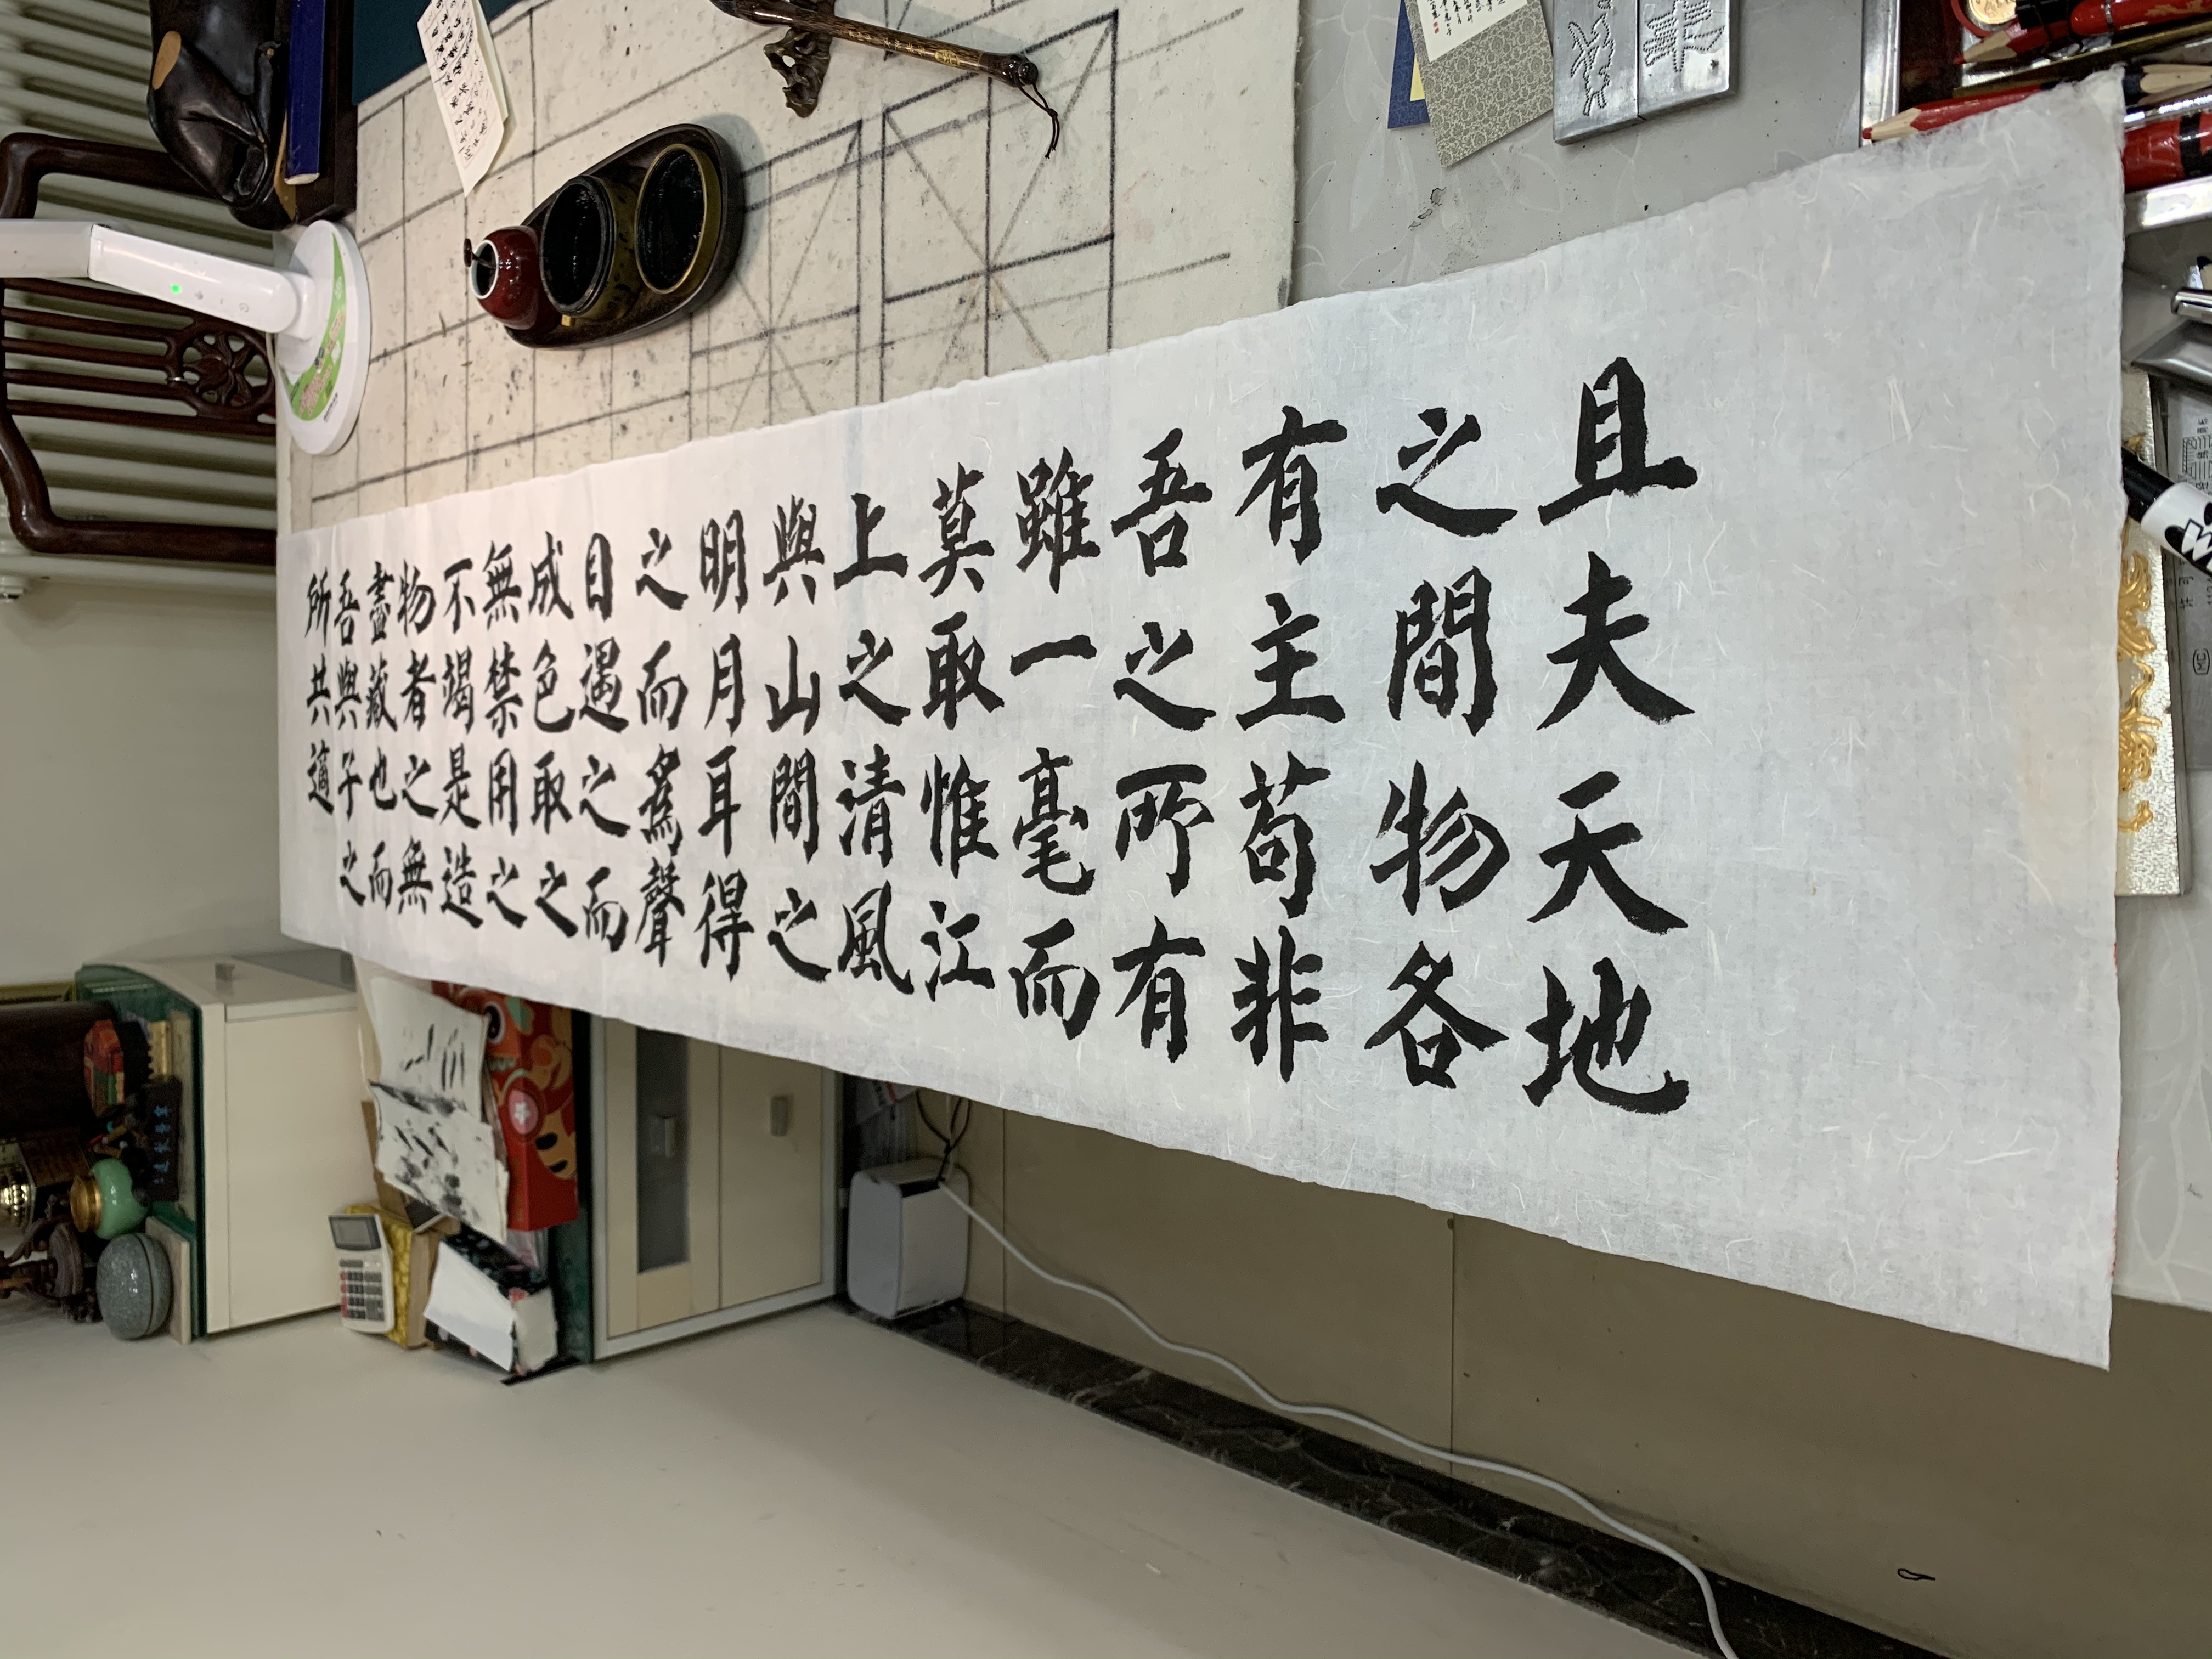 且夫天地
之間物各
有主苟非
吾之所有
雖一毫而
莫敢惟江
上之清風
與山間之
明月耳得
之而為聲
目遇之而
成色取之
無禁用之
不竭是造
物者之無
盡藏也而
吾與子之
所共適